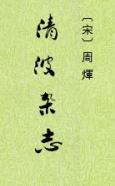 〔宋〕周煇
清波杂志